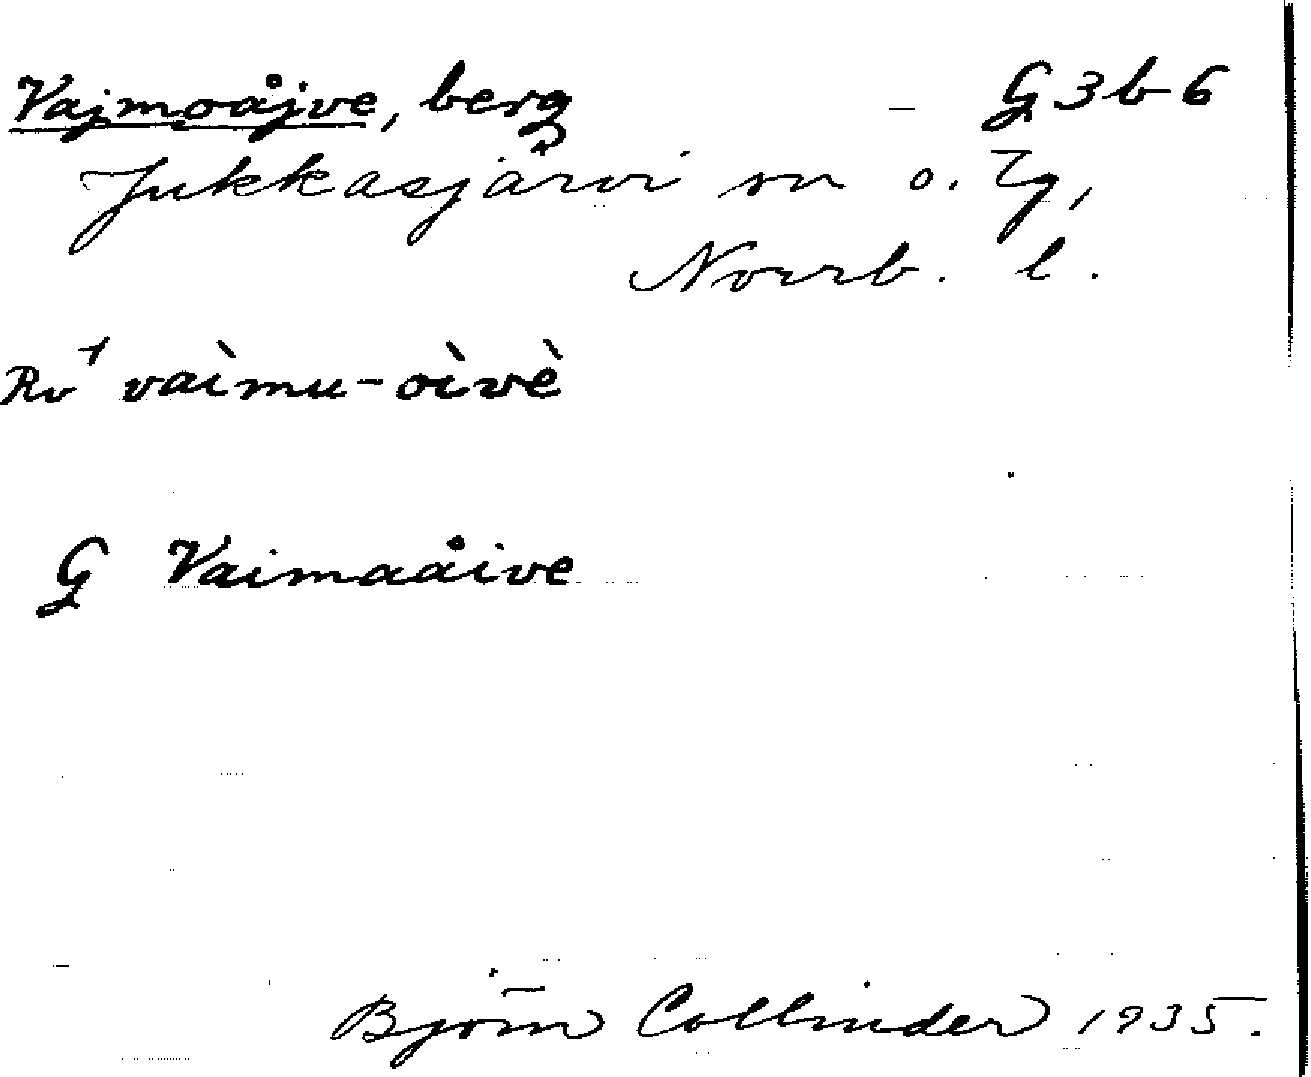 Vajmoåjve, berg – G 3 b 6
Jukkasjärvi sn o. Tg,
Norrb. l.
Rv 1 vaìmu-oìvè
G Vaimaåive
Björn Collinder 1935.